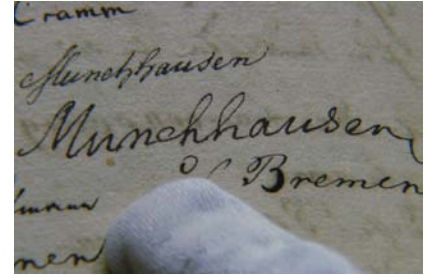 Cramm
Munchhausen
Munchhausen
Bremen